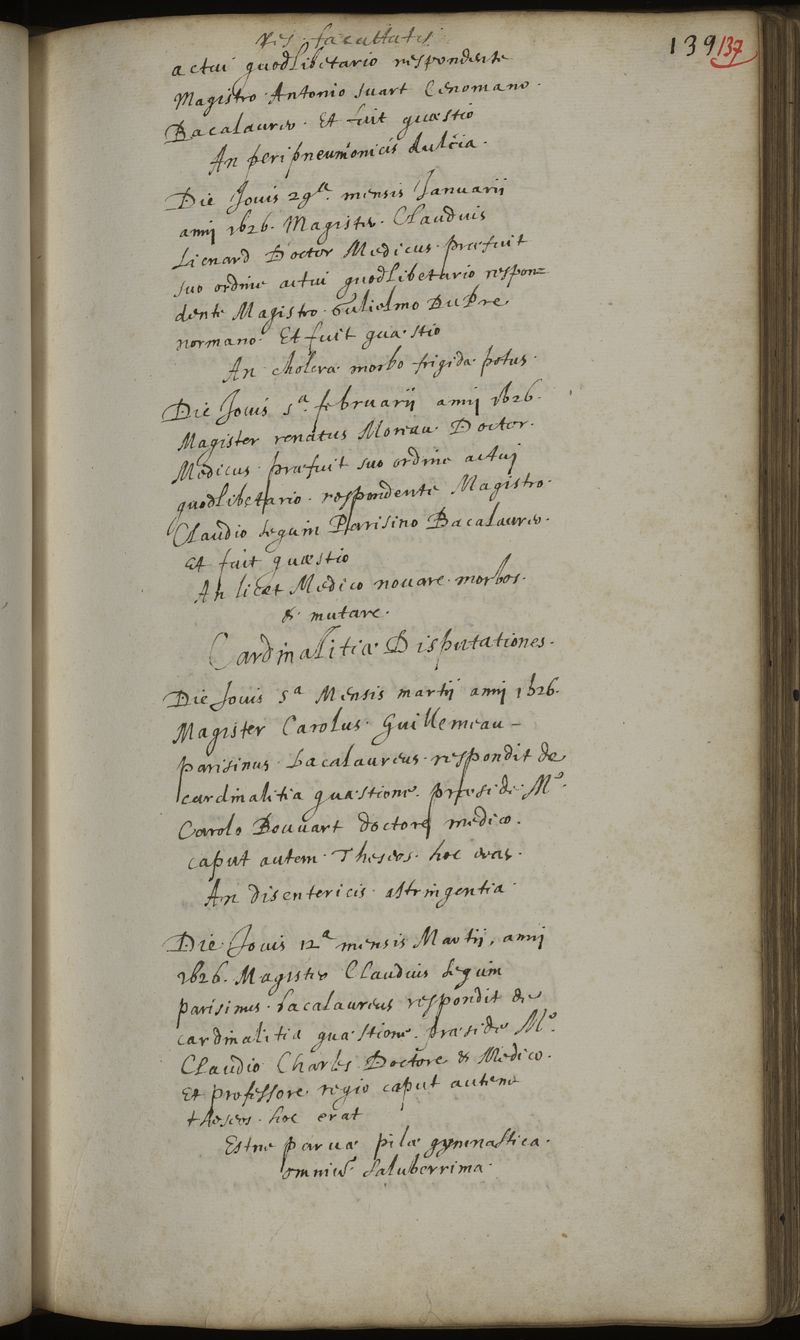 res facultatis
139 137
actui quodlibetario respondente
Magistro Antonio suart Cenomano.
Bacalaureo. Et fuit quæstio
An peripneumonicis dulcia.
Die Jouis 29ª. mensis Januarii
annj 1626. Magister. Claudius
Lienard Doctor Medicus. præfuit
suo ordine actui quodlibetario respon=
dente Magistro. Gulielmo DuPre
normano. Et fuit quæstio
An choleræ morbo frigidæ potus.
Die Jouis 5ª. februarij annj 1626.
Magister renatus Moreau Doctor.
Medicus. præfuit suo ordine actuj
quodlibetario. respondente Magistro.
Claudio seguin Parisino Bacalaureo.
Et fuit quæstio
An licet Medico nouare. morbos.
& mutare.
Cardinalitiæ Disputationes.
Die Jouis 5ª Mensis martij annj 1626.
Magister Carolus. Guillemeau –
parisinus bacalaureus. respondit de
cardinalitia quæstione. præside Mº.
Carolo Bouuart doctore medico.
caput autem. Theseos. hoc erat.
An disentericis. astringentia.
Die Jouis 12ª mensis Martij, annj
1626. Magister Claudius seguin
parisinus. bacalaureus respondit de
cardinalitia quæstione. præside Mº.
Claudio Charles Doctore & Medico.
Et professore regio caput autem
theseos. hoc erat
Estne paruæ pilæ gymnastica.
omniũ saluberrima.